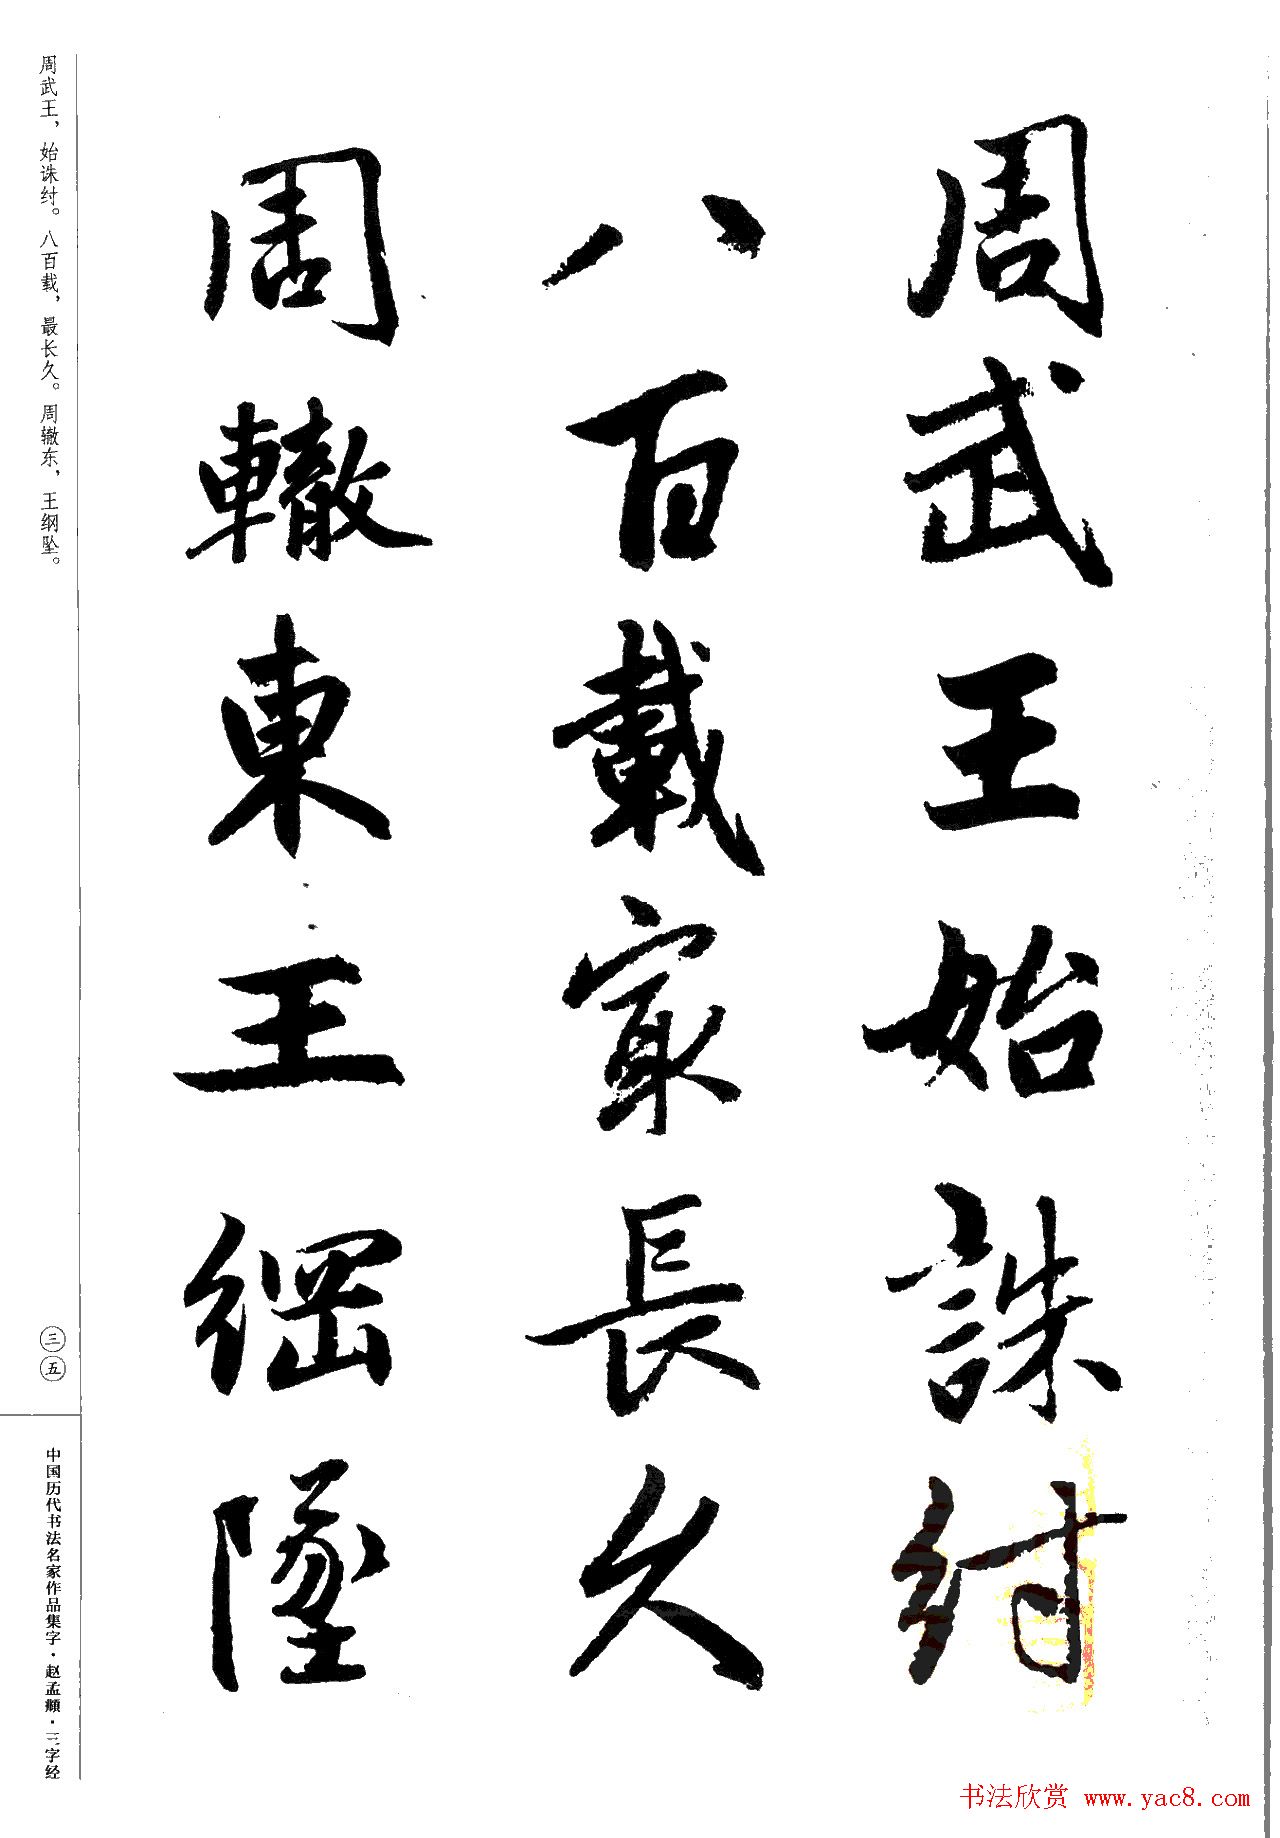 周武王始誅紂
八百載㝡長久
周轍東王綱墜
周武王，始诛纣。八百载，最长久。周辙东，王纲坠。
三五
中国历代书法名家作品集字·赵孟頫·三字经
书法欣赏 www.yac8.com